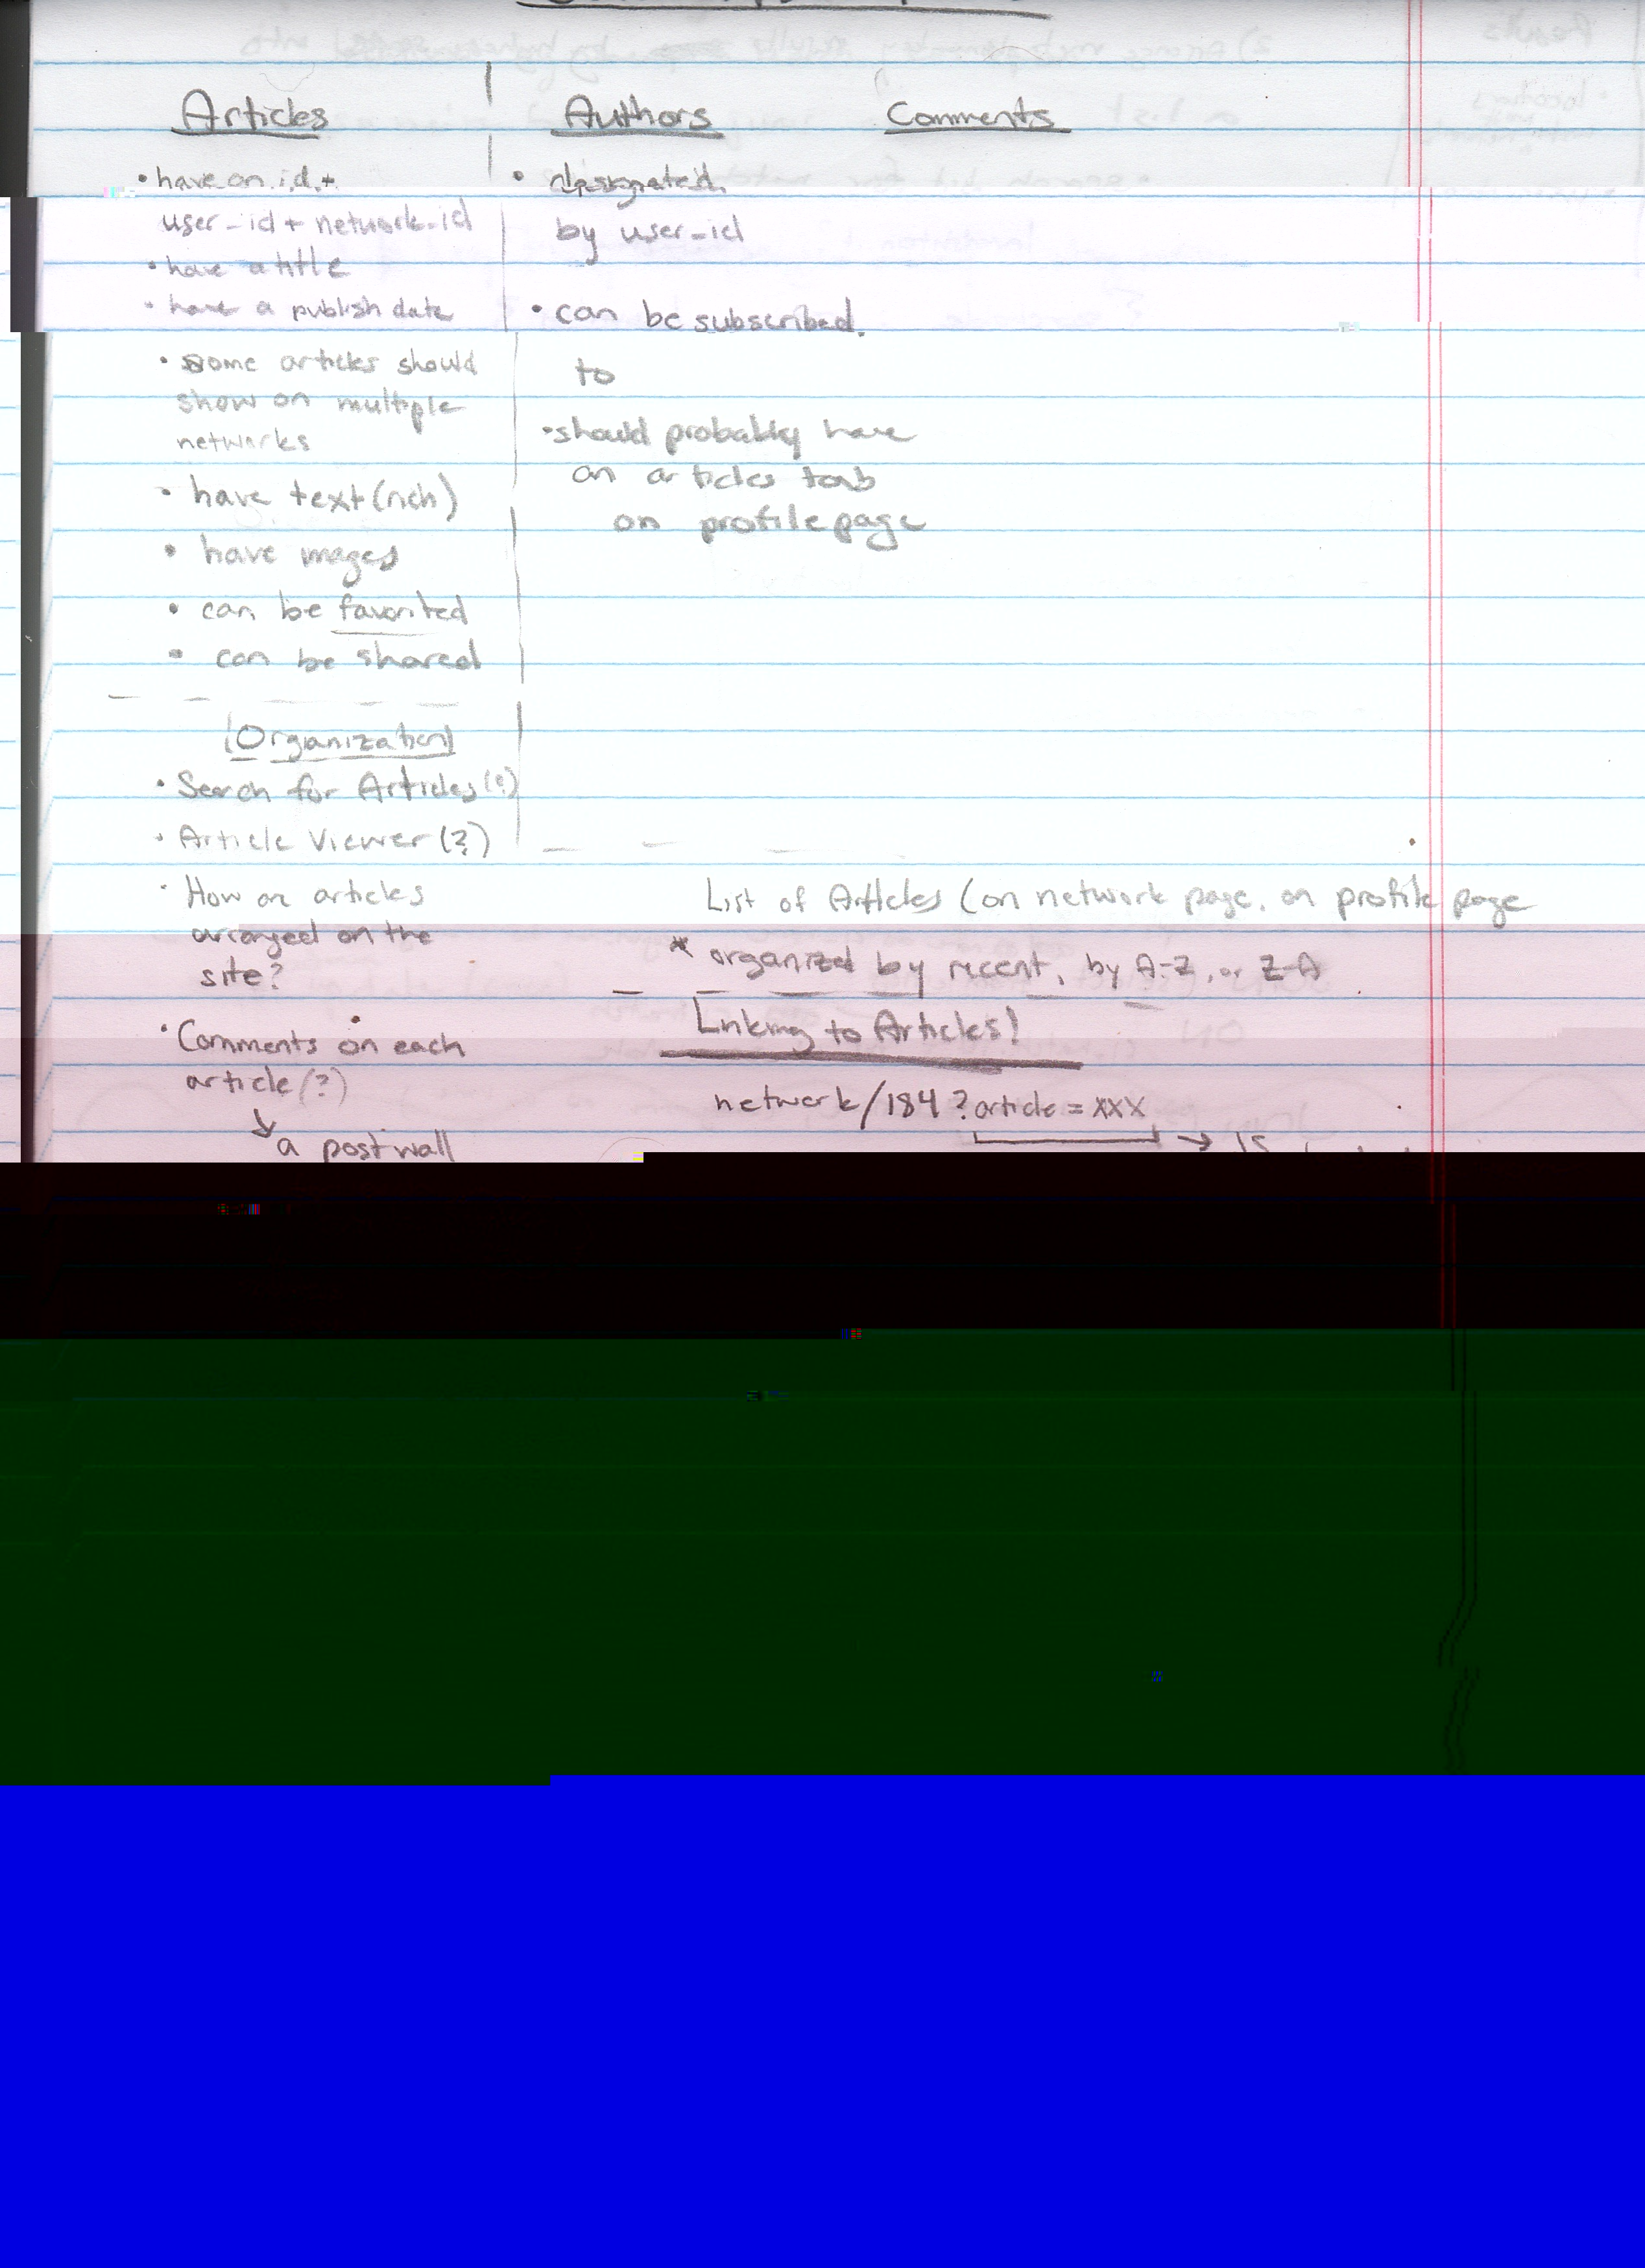 Articles
• have an id +
user_id + network_id
• have a title
• have a publish date
• some articles should
show on multiple
networks
• have text (rich)
• have images
• can be favorited
• can be shared
Organization
• Search for Articles (?)
• Article Viewer (?)
• How are articles
arranged on the
site?
• Comments on each
article (?)
↳ a post wall
Authors
• designated
by user_id
• can be subscribed
to
• should probably have
an articles tab
on profile page
Comments
List of Articles (on network page, on profile page
* organized by recent, by A-Z, or Z-A
Linking to Articles!
network/184?article=xxx